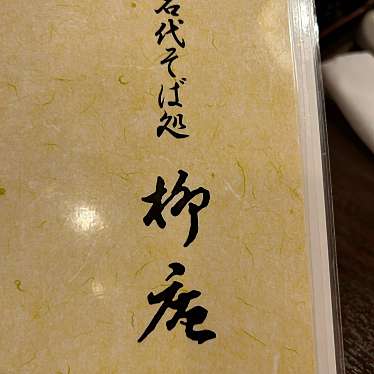 名代そば処
柳庵